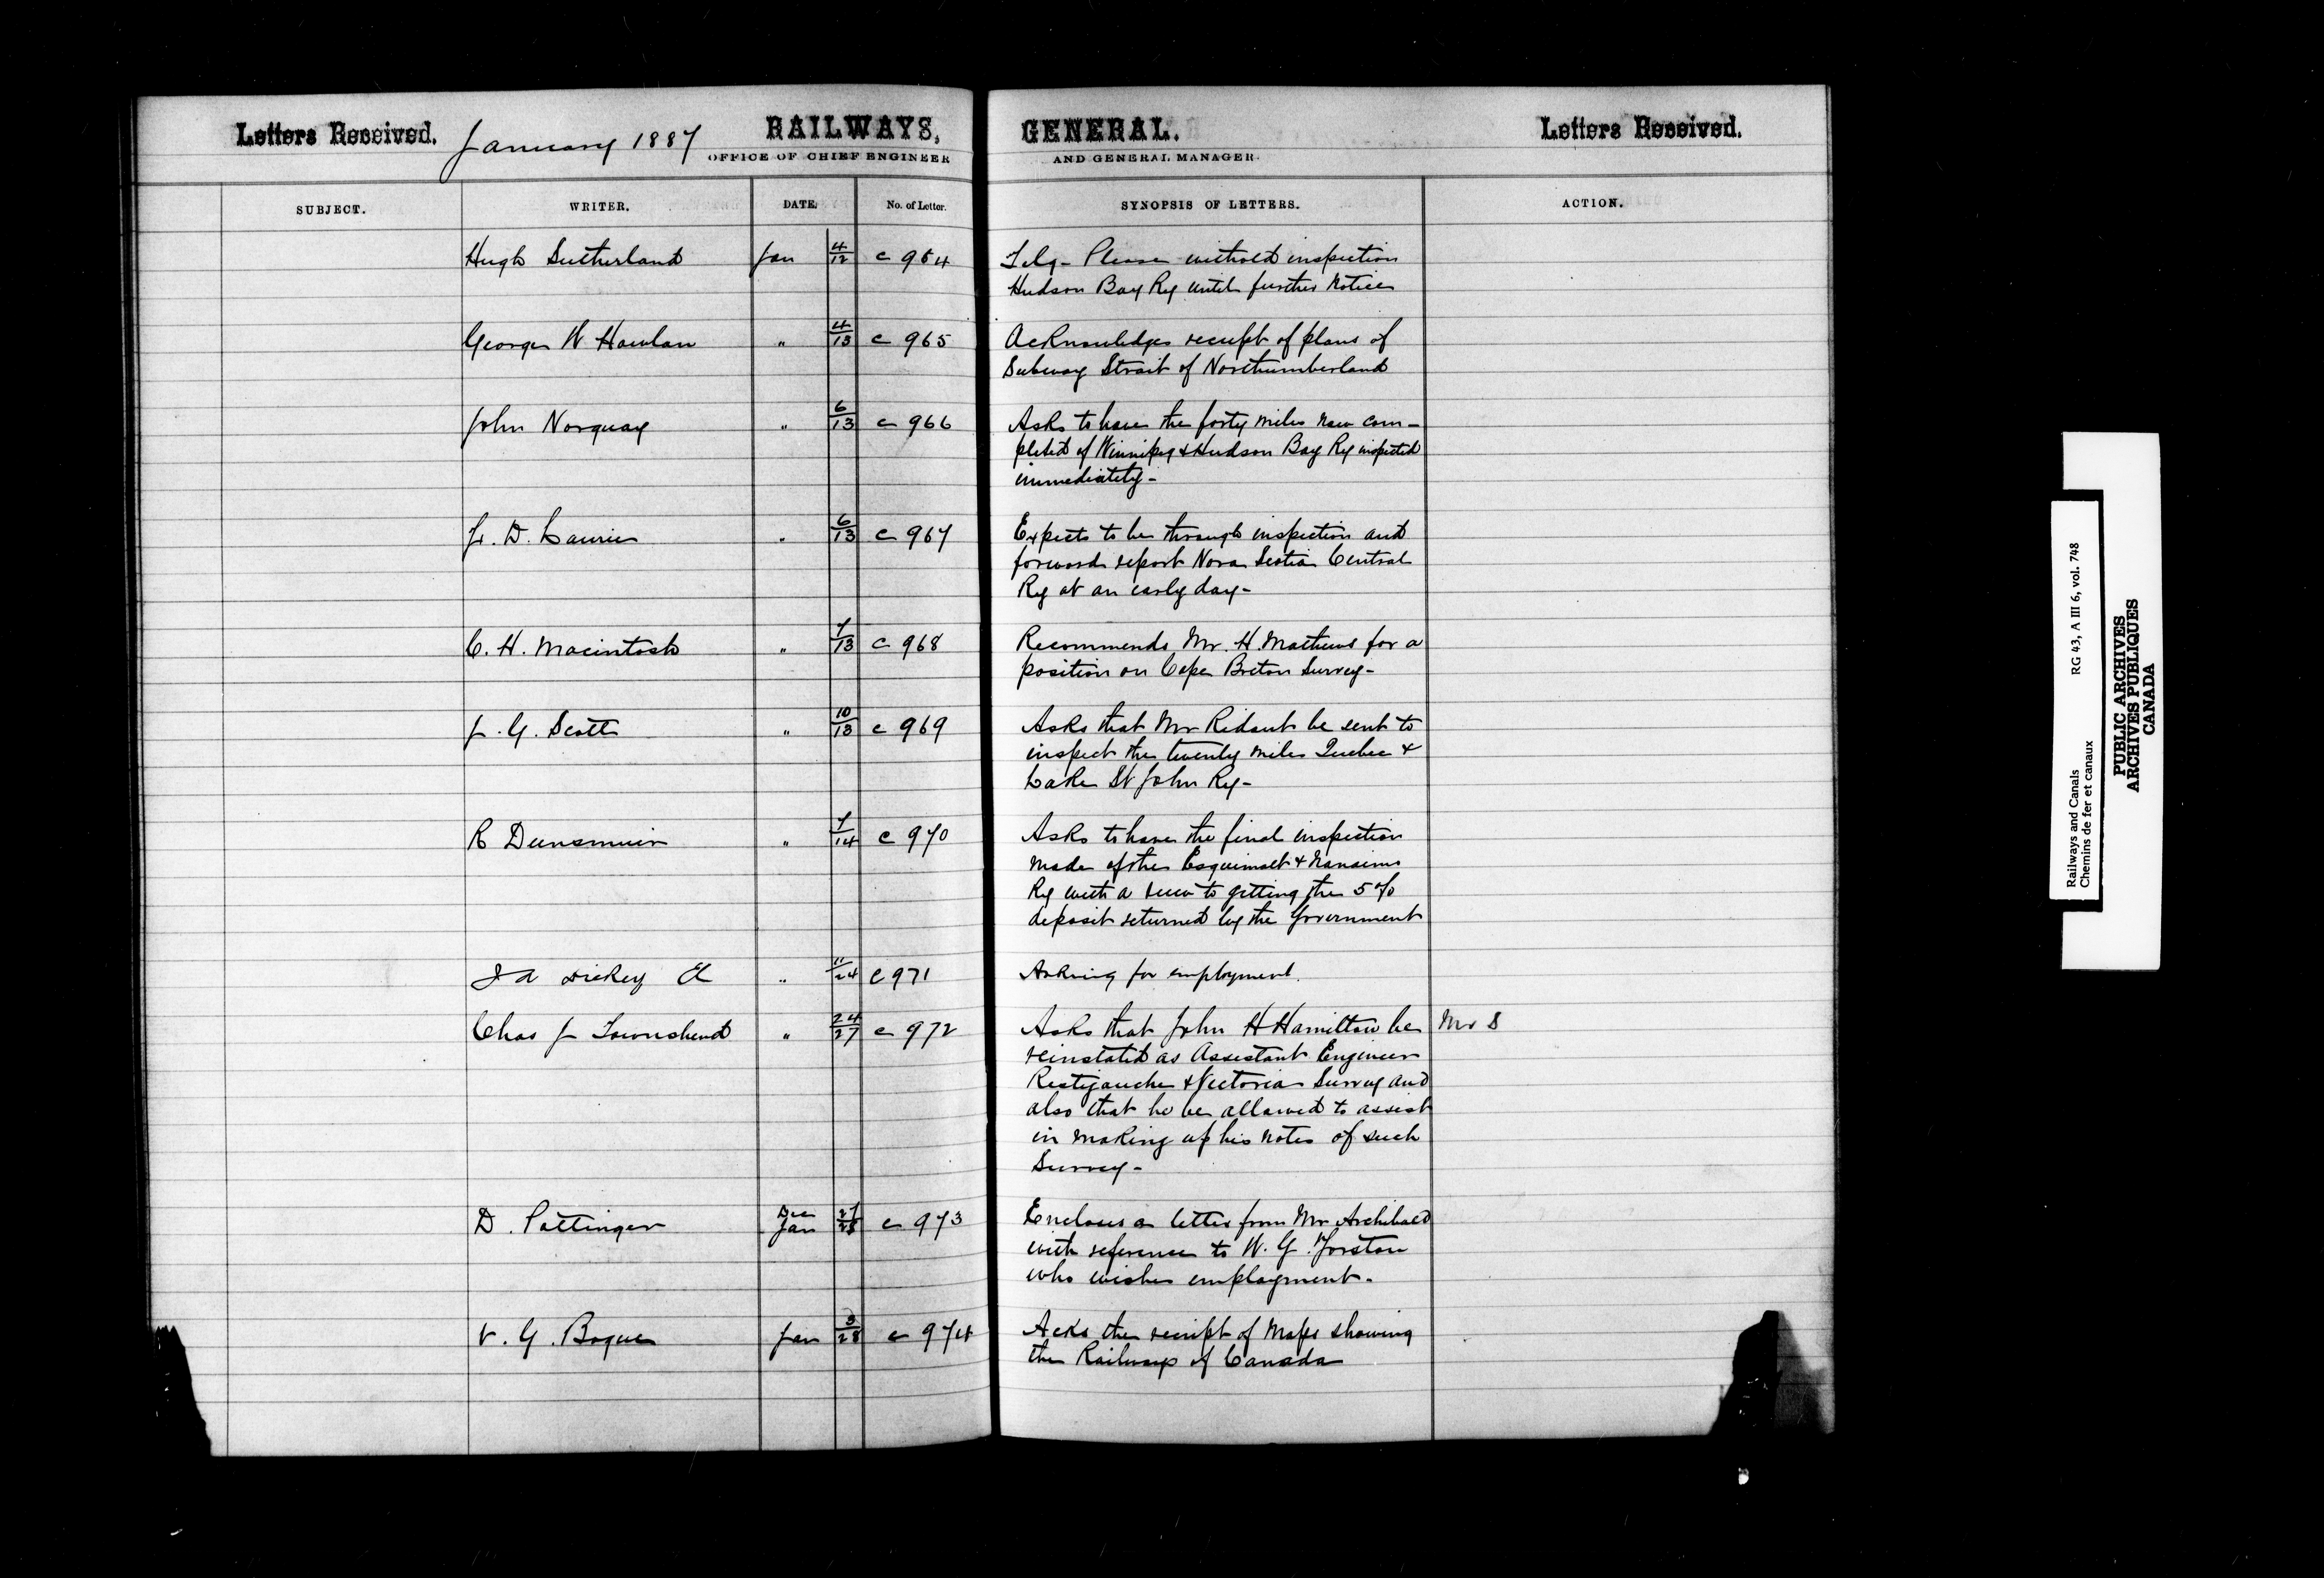 Letters Received. January 1887 RAILWAYS, GENERAL. Letters Received.
OFFICE OF CHIEF ENGINEER AND GENERAL MANAGER.
SUBJECT. WRITER. DATE. No. of Letter. SYNOPSIS OF LETTERS. ACTION.
Hugh Sutherland Jan 4/12 c 964 Telg - Please withold inspection
Hudson Bay Ry until further notice
George W Howlan " 4/13 c 965 Acknowledges receipt of plans of
Subway Strait of Northumberland
John Norquay " 6/13 c 966 Asks to have the forty miles now com-
pleted of Winnipeg & Hudson Bay Ry inspected
immediately -
J. D. Laurie " 6/13 c 967 Expects to be through inspection and
forward report Nova Scotia Central
Ry at an early day -
C. H. Macintosh " 7/13 c 968 Recommends Mr. H. Mathews for a
position on Cape Breton Survey -
J. G. Scott " 10/13 c 969 Asks that Mr Ridout be sent to
inspect the twenty miles Quebec &
Lake St John Ry -
R Dunsmuir " 7/14 c 970 Asks to have the final inspection
made of the Esquimalt & Nanaimo
Ry with a view to getting the 5%
deposit returned by the Government
J A Dickey CE " 11/24 C 971 Asking for employment.
Chas J Townshend " 24/27 c 972 Asks that John H Hamilton be Mr S
reinstated as Assistant Engineer
Restigouche & Victoria Survey and
also that he be allowed to assist
in making up his notes of such
Survey -
D. Pottinger Dec 27 Jan 28 c 973 Encloses a letter from Mr Archibald
with reference to W. G. Yorston
who wishes employment.
V. G. Bogue Jan 3/28 c 974 Acks the receipt of Maps showing
the Railways of Canada
Railways and Canals RG 43, A III 6, vol. 748
Chemins de fer et canaux
PUBLIC ARCHIVES
ARCHIVES PUBLIQUES
CANADA